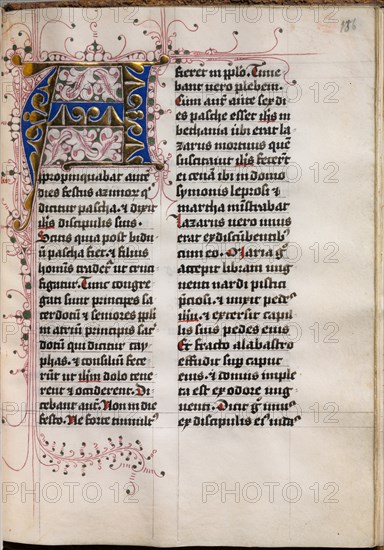 186
A
ppropinquabat aute
dies festus azimor q
dicitur pascha. et dixit
ihs discipulis suis.
Scitis quia post bidu
u pascha fiet. et filius
hominis tradet ut cruci
figatur. Tunc congre
gati sunt principes sa
cerdotu et seniores ppli
in atriu principis sa
dotu qui dicitur cay
phas. et consiliu fece
rut ut ihm dolo tene
rent et occiderent. Di
cebant aut. Non in die
festo. Ne forte tumult
fieret in pplo. Time
bant vero plebem.
Cum aut ante sex di
es pasche esset ihs in
bethania ubi erat la
zarus mortuus que
suscitavit ihs fecert
ei cena ibi in domo
symonis leprosi et
martha mistrabat
Lazarus vero unus
erat ex discubentib
cum eo. Maria g
accepit libram ung
uenti nardi pistici
pciosi. et unxit pedes
ihu. et extersit capil
lis suis pedes eius
Et fracto alabastro
effudit sup caput
eius. et domus imple
ta est ex odore ung
uenti. Dicit g unus
ex discipulis ei iudas
PHOTO 12